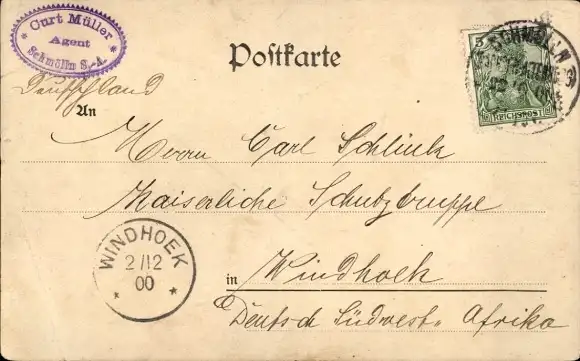 Curt Müller
Agent
Schmölln S.-A.
Postkarte
5
REICHSPOST
Deutschland
An
Herrn Carl
Kaiserliche Schutztruppe
WINDHOEK
2/12
00
in Windhoek
Deutsch Südwest-Afrika